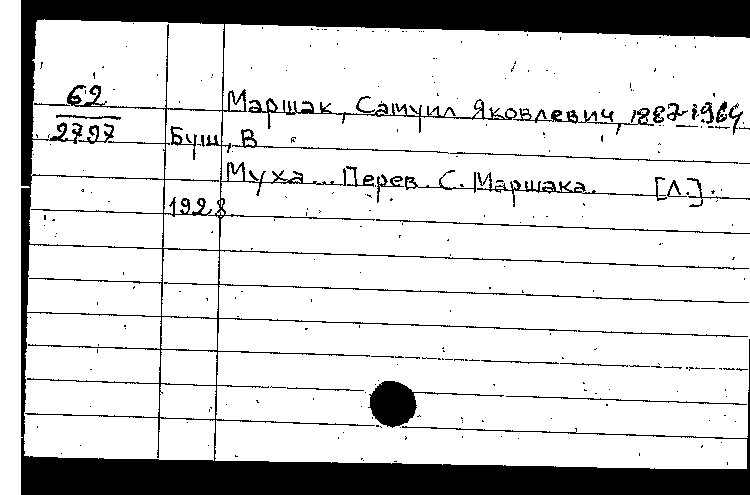 62
2797
Маршак, Самуил Яковлевич, 1887-1964
Буш, В
Муха... Перев. С. Маршака. [Л.].
1928.